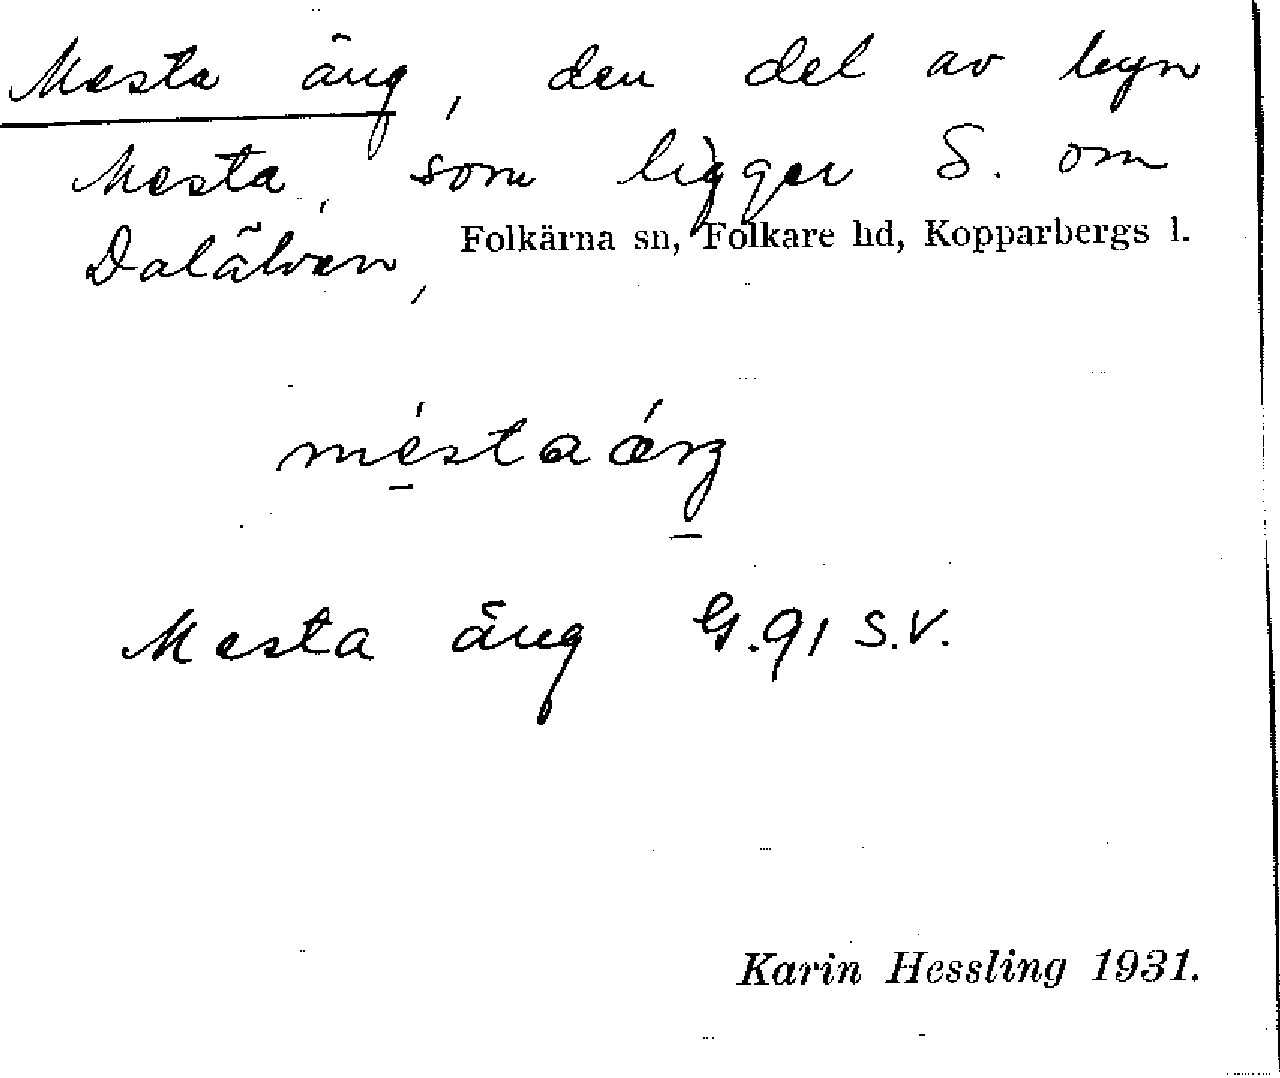 Mesta äng, den del av byn
Mesta, som ligger S. om
Dalälven,
Folkärna sn, Folkare hd, Kopparbergs l.
méstaǽŋ
Mesta äng G.91 S.V.
Karin Hessling 1931.